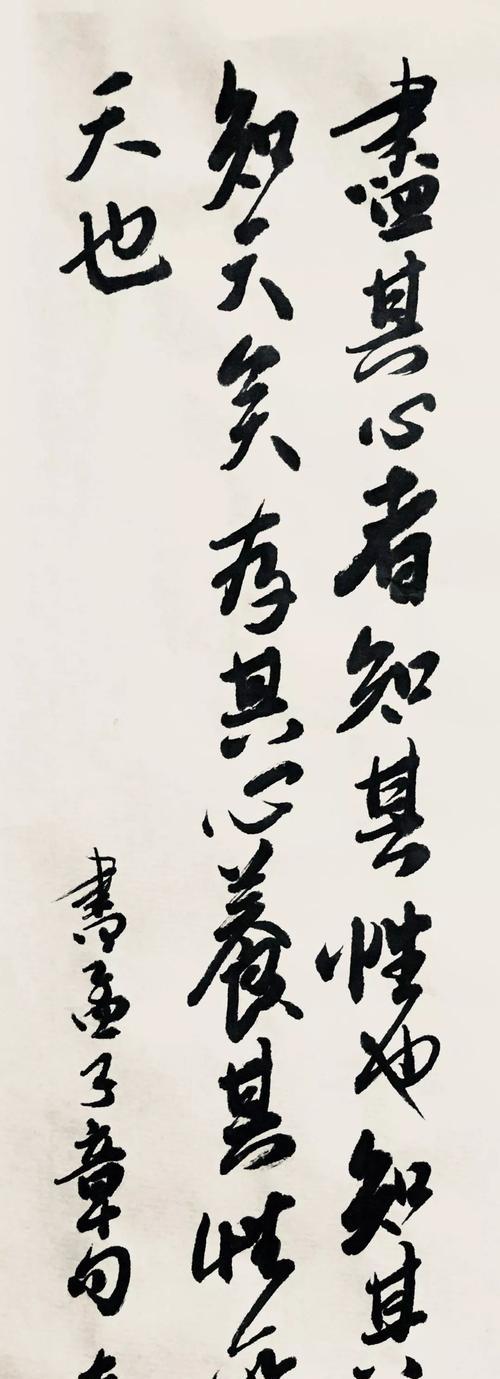 盡其心者知其性也知其
知天矣存其心養其性
天也
書孟子章句